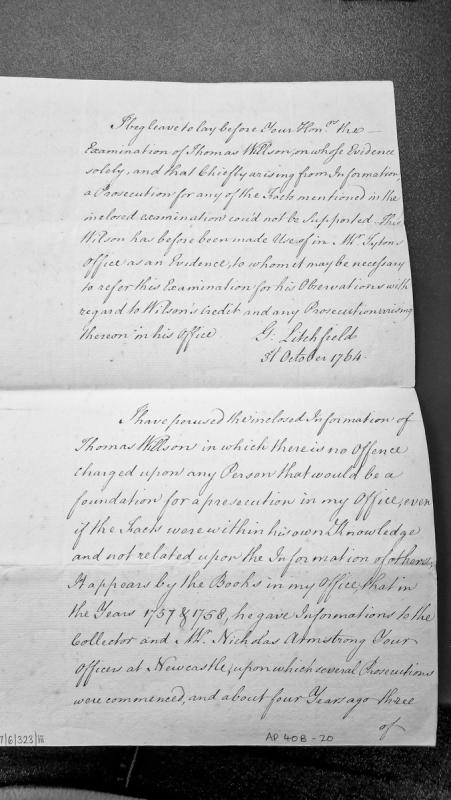 I beg leave to lay before Your Hon.rs the —
Examination of Thomas Willson, on whose Evidence
solely, and that Chiefly arising from Information,
a Prosecution for any of the Facts mentioned in the
inclosed examination could not be Supported. This
Wilson has before been made Use of in Mr. Tyton's
Office as an Evidence, to whom it may be necessary
to refer this Examination for his Observations with
regard to Wilson's Credit and any Prosecution arising
thereon in his Office
G: Litchfield
31 October 1764.
I have perused the inclosed Information of
Thomas Willson in which there is no Offence
charged upon any Person that would be a
foundation for a prosecution in my Office, even
if the Facts were within his own Knowledge
and not related upon the Information of others,
It appears by the Books in my Office, that in
the Years 1757 & 1758, he gave Informations to the
Collector and Mr. Nicholas Armstrong Your
Officers at Newcastle, upon which several Prosecutions
were commenced, and about four Years ago three
of
7/6/323/vii
AP 40B-20